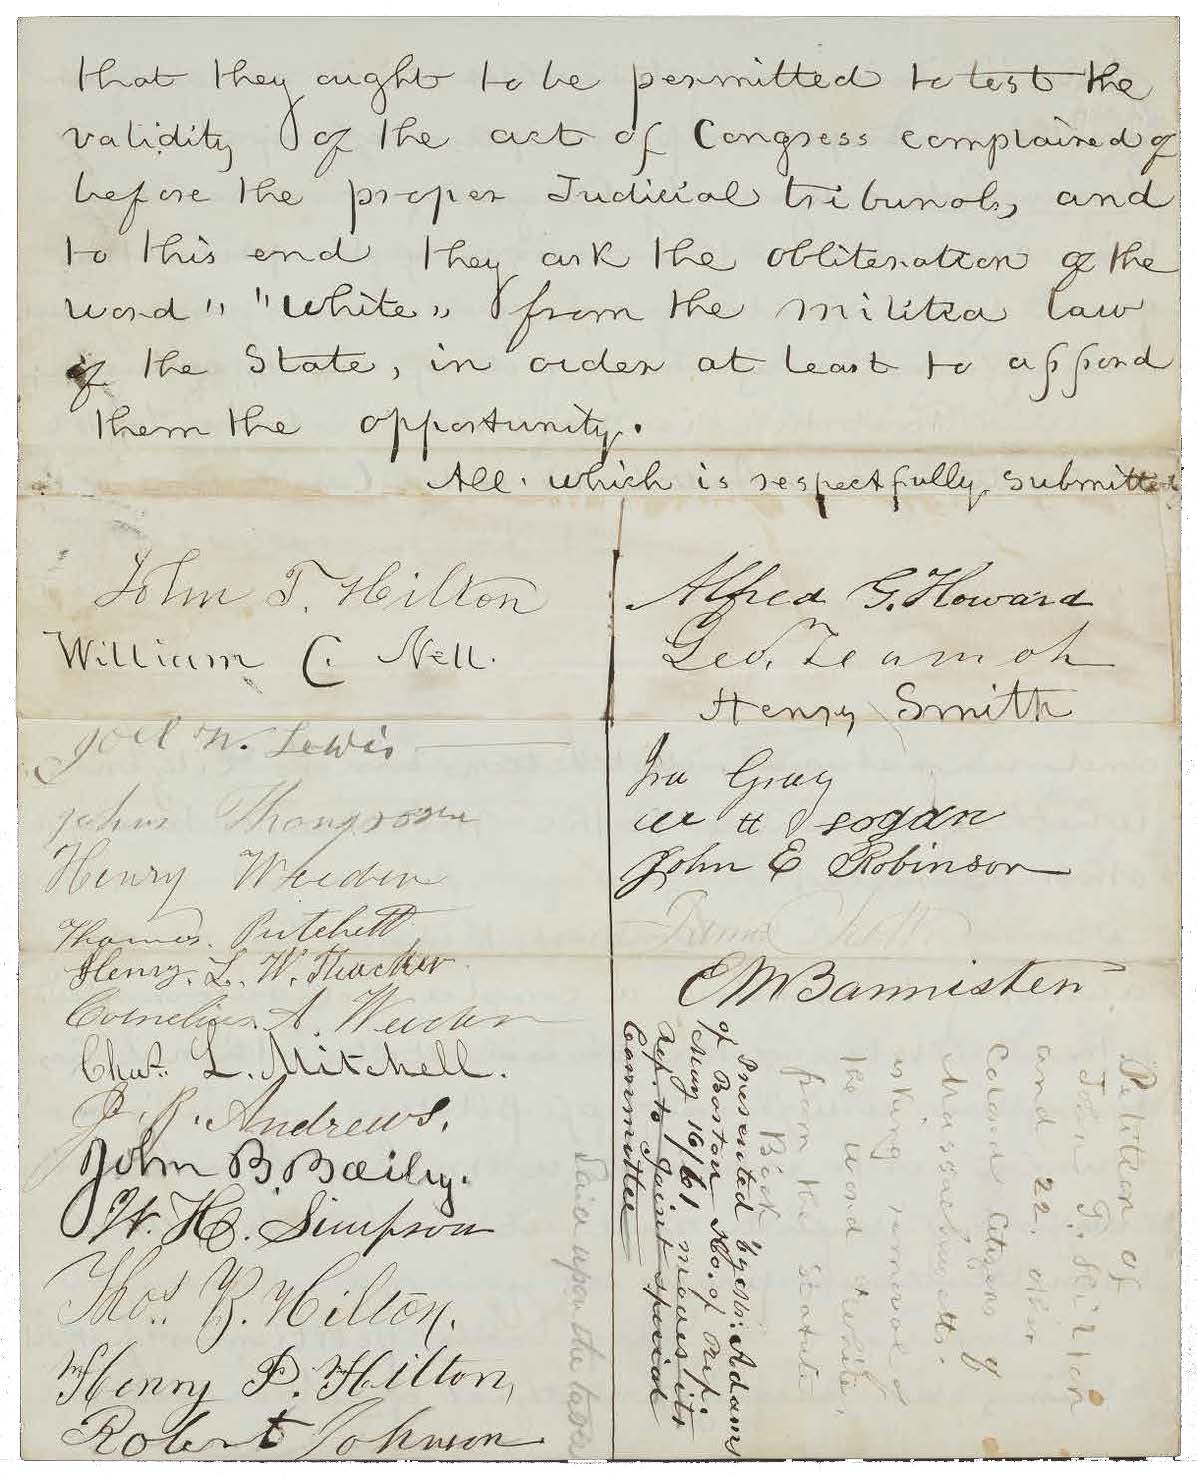 that they ought to be permitted to test the
validity of the act of Congress complained of
before the proper Judicial tribunals, and
to this end they ask the obliteration of the
word " "white" from the militia law
of the State, in order at least to afford
them the opportunity.
All. which is respectfully submitted
John T. Hilton
William C. Nell.
Joel W. Lewis
John Thompson
Henry Weeden
Thomas. Pritchett
Henry. L. W. Thacker
Cornelius. A. Weeden
Chas. L. Mitchell.
J. R. Andrews.
John B. Baily.
W. H. Simpson
Thos. B. Hilton.
Henry P. Hilton,
Robert Johnson
Alfred G. Howard
Geo. Teamoh
Henry Smith
Ira Gray
W H Logan
John E Robinson
Scott
E M Bannister
Petition of
John T. Hilton
and 22. other
Colored Citizens of
Massachusetts.
asking removal of
the word "white"
from the Statute
Book
Presented by Mr. Adams
of Boston Ho. of Reps.
May 16/61 moves its
Ref. to Joint special
Committee
Laid upon the table